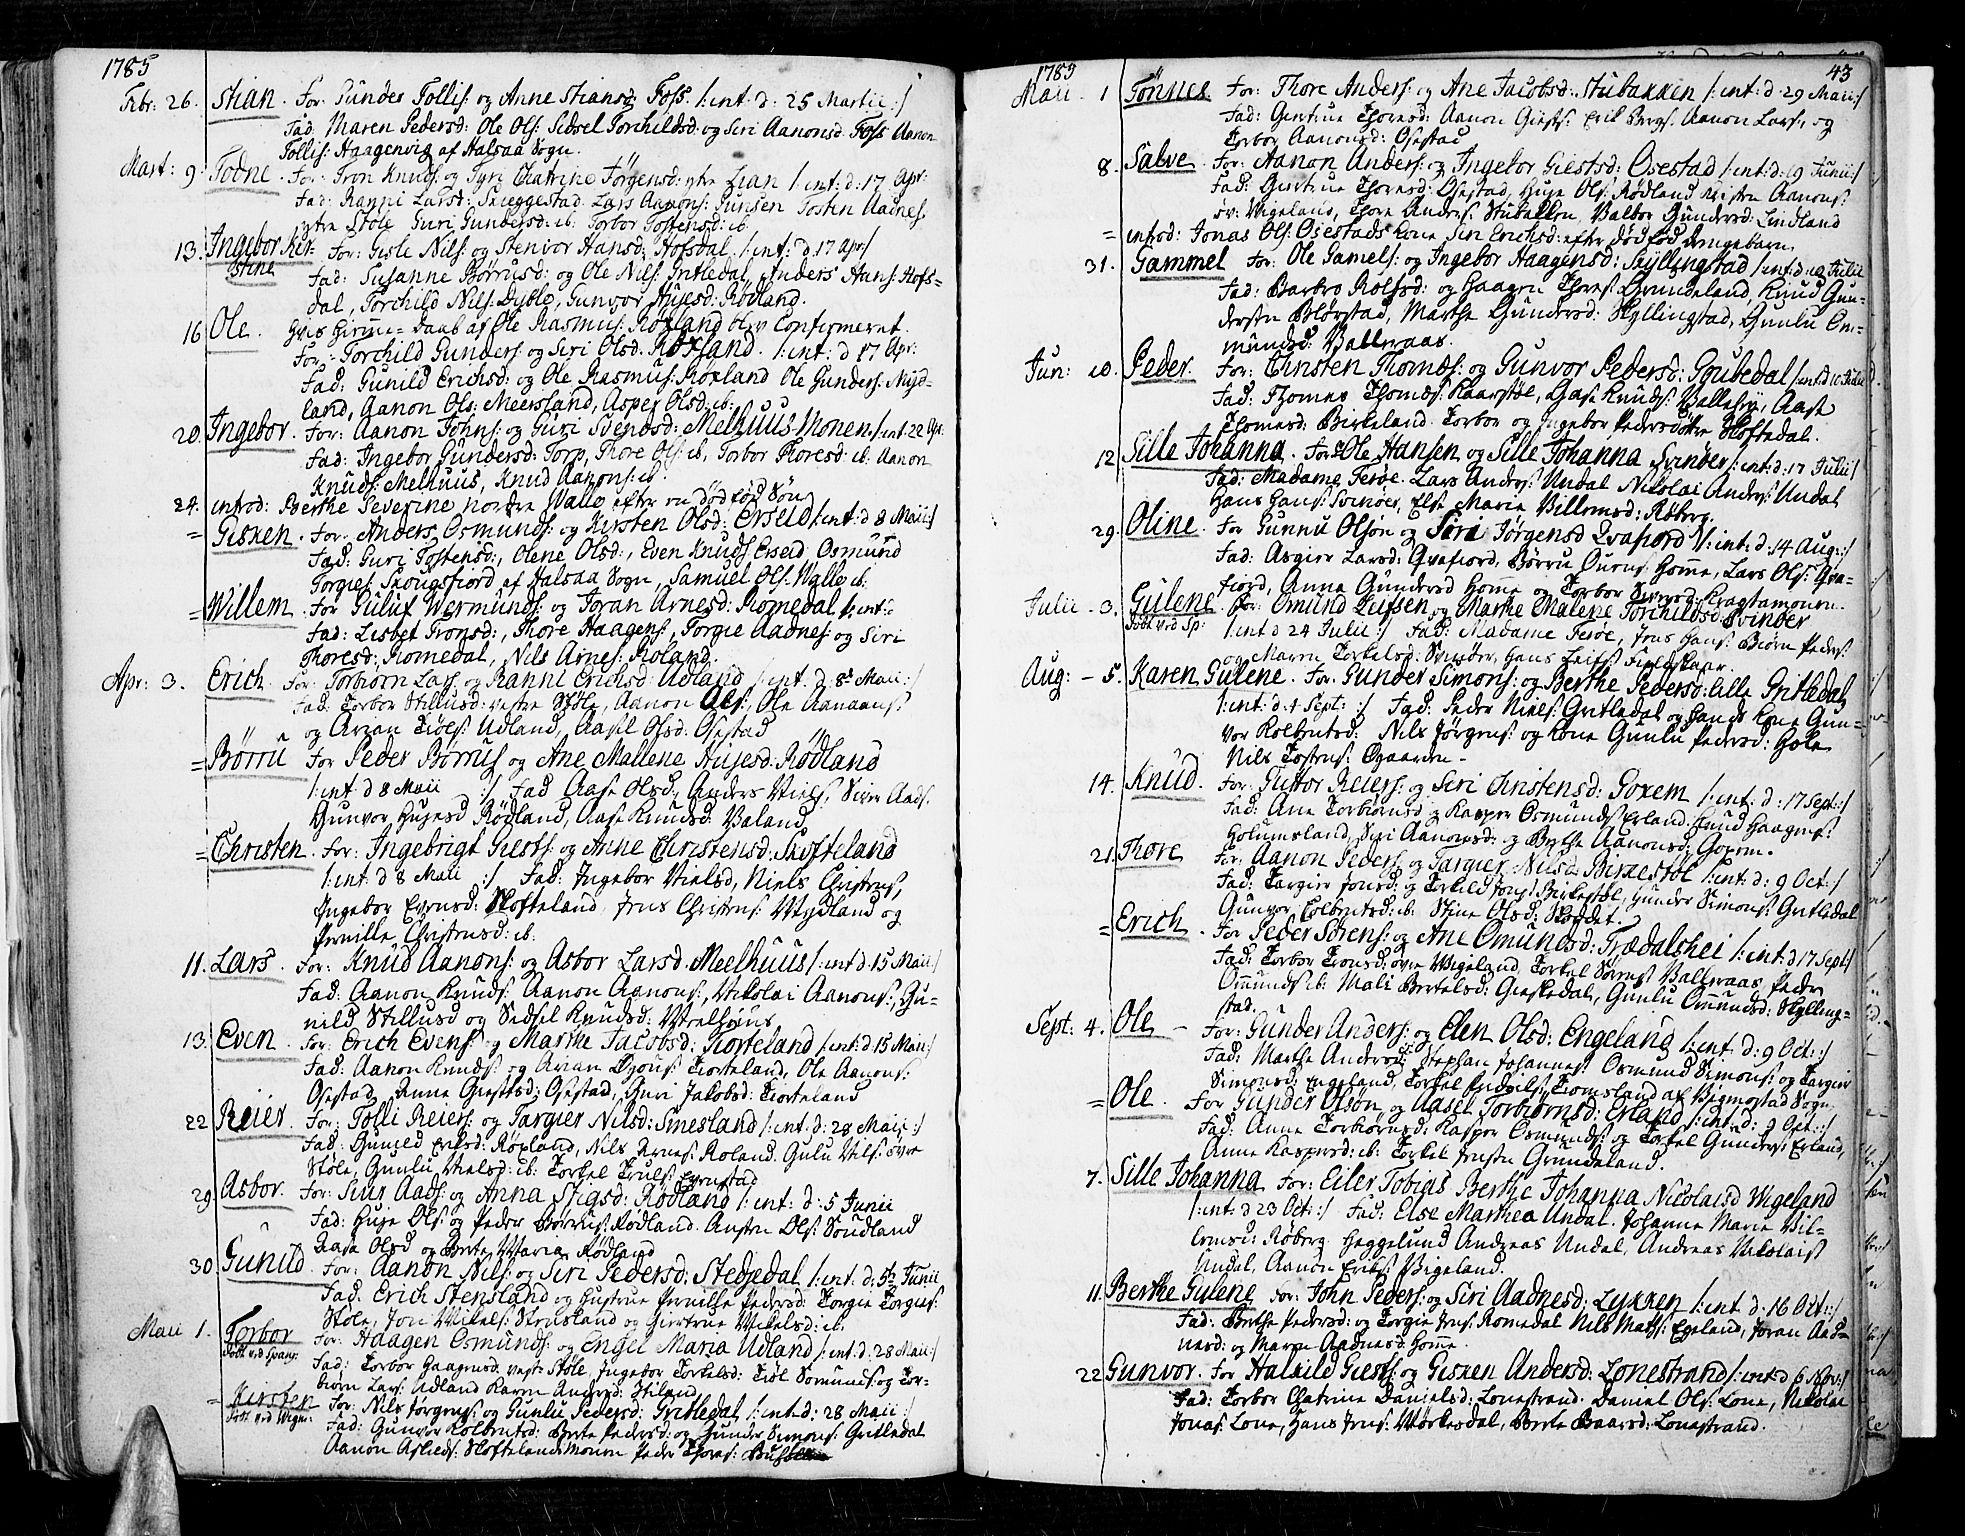 1785
Febr: 26. Stian. For: Gunder Tollis: og Anne Stiansd Foss /: int: d: 25 Martii :/
Fad: Maren Pedersd: Ole Ols: Sidsel Torchildsd: og Siri Aanonsd Foss Aanon
Tollis: Haagenvig af Halsaa Sogn.
Mart: 9. Todne. For: Tron Knuds: og Tyri Catrine Jörgensd: ytre Lian /: int: d: 17 Apr:
Fad: Ranni Larsd: Skeggestad. Lars Aanons: Tosten Aadnes
ytre Støle Guri Gundersd: ib: Torbor Tostensd: ib
13. Ingebor Kir= For: Gisle Nils: og Stenvor Hansd: Hofsdal /: int: d 17 Apr/
stine Fad: Susanne Börrusd: og Ole Nils: Gritledal, Anders Hans: Hofs=
dal, Torchild Nils: Dyblo, Gunvor Hujesd: Rødland.
16 Ole. hvis hjemme= Daab af Ole Rasmus: Röxland blev Confirmeret.
For: Torchild Gunders: og Siri Olsd. Röxland. /: int: d 17 Apr:
Fad: Gunild Erichsd: og Ole Rasmus: Röxland Ole Gunders: Nyd=
land, Aanon Ols: Meersland, Asper Olsd: ib:
20. Ingebor. For: Aanon Johns: og Guri Svendsd: Melhuus-Monen /: int: 22 Apr.
Fad: Ingebor Gundersd: Torp, Thore Ols: ib, Torbor Thoresd: ib: Aanon
Knuds: Melhuus, Knud Aanons: ib.
24. introd: Berthe Severine nordre Walle efter en död fød Søn
= Gisken. For: Anders Osmunds: og Kirsten Olsd: Erseid /: int: d 8 Maii:/
Fad: Guri Tostensd:, Olene Olsd:, Even Knuds Erseid, Osmund
Torgies: Skougsfiord af Halsaa Sogn, Samuel Ols: Walle ib:
= Willem. For Guluf Wermunds: og Joran Arnesd: Romedal /: int:
Fad: Lisbet Tronsd:, Thore Haagens, Torgie Aadnes: og Siri
Thoresd: Romedal, Nils Arnes: Roland.
Apr: 3. Erich. For: Torbiørn Lars: og Ranni Erichsd: Udland /: int: d: 8 Maii :/
Fad: Torbor Stillusd: vestre Støle, Aanon Ols:, Ole Aanans
og Arian Kiöls: Udland, Aasil Olsd: Osestad
= Börrü For Peder Börrus og Ane Mallene Hujesd: Rødland
/: int: d 8 Maii :/ Fad Aase Olsd:, Anders Niels, Siver Aads.
Gunvor Hujesd Rødland, Aase Knudsd: Valand
= Christen. For: Ingebrigt Giests: og Anne Christensd: Skofteland
/: int: d 8 Maii :/ Fad: Ingebor Nielsd, Niels Christens,
Ingebor Evensd: Skofteland, Jens Christens: Nydland og
Pernille Christensd: ib:
11. Lars. For: Knud Aanons: og Asbor Larsd: Meelhuus /: int: d 15 Maii:/
Fad: Aanon Knuds: Aanon Aanons:, Nikolai Aanons:, Gu=
nild Stillusd og Sidsel Knudsd: Meelhuus
13. Even. For: Erich Evens: og Marthe Jacobsd: Kiorteland /: int: d: 15 Maii:/
Fad: Aanon Knuds og Arian Kiorteland, Ole Aanons:
Osestad, Anne Giestsd: Osestad, Guri Jakobsd: Kiorteland
22 Reier. For: Tolli Reiers: og Targier Nilsd: Smesland /: int: d: 28 Maii :/
Fad: Gunild Eriksd: Röxland, Nils Arnes: Roland. Gulu Nils: övre
Støle, Gunlu Nielsd: ib: Torkel Truels: Egenstad
29. Asbor. For: Siur Aads: og Anna Stigsd: Rødland /: int: d: 5 Junii
Fad: Huje Ols: og Peder Börrus: Rødland. Austen Ols: Soudland
Aase Olsd og Berte Maria Rødland
30. Gunild. For: Aanon Nils: og Siri Pedersd: Stedjedal /: int: d: 5te Junii
Fad: Erich Stensland og Hustrue Pernille Pedersd: Torgie Torgies:
Støle, Jon Mikels: Stensland og Giertrue Mikelsd: ib.
Maii 1. Torbor For: Haagen Osmunds: og Engel Maria Udland /: int: d: 28 Maii:/
Døbt ved Spang: Fad: Torbor Haagensd: vestr: Støle, Ingebor Torkelsd: og Tor=
biørn Lars: Udland Karen Andersd: Hiland
= Kirsten For: Nils Jörgens: og Gunlu Pedersd: Gritledal /: int: d: 28 Maii :/
Døbt ved Wigm: Fad: Gunvor Kolbentsd: Berte Pedersd: og Gunder Simons: Gritledal
Aanon Aslieds: Skoftelandsmonen Peder Thores:
1785 43
Maii. 1 Tönnes For: Thore Anders: og Ane Jacobsd: Stübakken /: int: d: 29 Maii:/
Fad: Giertrue Thoresd: Aanon Giests: Erik Bergs. Aanon Lars:, og
Torbor Aanonsd: Osestad
8. Salve. For: Aanon Anders: og Ingebor Giestsd: Osestad /: int: d: 19 Junii:/
Fad: Giertrue Thoresd: Osestad, Huje Ols: Rødland Kristen Aanons:
öv: Wigeland, Thore Anders: Stubakken, Valbor Gundersd: Lindland
= introd: Jonas Ols: Osestads kone Siri Erichsd: efter dødfød drengebarn.
31. Gammel For: Ole Gamels: og Ingebor Haagensd: Skyllingstad /: int: d: 10 Julii
Fad: Barbro Rolfsd: og Haagen Thores Grundeland, Knud Gun=
dersen Blørstad, Marthe Gundersd: Skyllingstad, Gunlu Om=
mundsd: Valleraas.
Jun: 10. Peder. For: Christen Thomes: og Gunvor Pedersd: Goubedal /: int: d 10 Julii
Fad: Thomes Thomes: Kaarstøl, Aase Knuds: Vallesön, Aase
Thomesd: Birkeland. Torbor og Ingebor Pedersdötre Skoftedal.
12. Sille Johanna. For: Ole Hansen og Sille Johanna Svinöer /: int: d: 17 Julii/
Fad: Madame Feröe. Lars Anders: Undal Nikolai Anders: Undal
Hans Hans: Svinöer, Else Maria Villumsd: Røberg.
29. Oline. For Gunnu Olsön og Siri Jörgensd Qvafiord /: int: d: 14 Aug:/
Fad: Asgier Larsd: Qvafiord, Börru Ouens: Homme, Lars Ols: Qva=
fiord, Anna Gundersd Homme og Torbor Simensd: Kragtamonen.
Julii - 3. Gülene. For: Omund Leifsen og Marthe Malene Torchildsd: Svinöer
Døbt ved Sp: /: int: d 24 Julii :/ Fad: Madame Feröe, Jens Hans: Biørn Peders:
og Maren Torkelsd: Svinöer, Hans Leifs:
Aug: - 5. Karen Gülene. For: Gunder Simons: og Berthe Pedersd: lille Gritledal
/: int: d. 4 Sept: :/ Fad: Peder Niels: Gritledal og Hands kone Gun=
vor Kolbentsd: Nils Jörgens: og kone Gunlu Pedersd: Hole
Nils Tostens: Øgaarden -
14. Knud. For: Gustor Reiers: og Siri Christensd: Goxem /: int: d: 17 Sept:/
Fad: Ane Torbiørnsd: Kasper Osmunds: Erland: Knud Haagens:
Holumsland, Siri Aanonsd: og Berthe Aanonsd: Goxem.
21. Thore For: Aanon Peders: og Targier Nilsd: Birkestöl /: int: d: 9 Oct:/
Fad: Targier Jonsd: og Torkild Jons: Birkestøl, Gunder Simons: Gritledal
Gunvor Kolbentsd: ib: Stine Olsd: Skoydet.
= Erich. For Peder Sörens: og Ane Omundsd: Trædalshei /: int: d 17 Sept:/
Fad: Torbor Tronsd: övre Wigeland, Torkel Sörens Valleraas, Peder
Ommunds: ib: Mali Bertelsd: Gieskedal, Gunlu Ommundsd: Skylling=
stad.
Sept: 4. Ole - For: Gunder Anders: og Elen Olsd: Engeland /: int: d: 9 Oct: :/
Fad: Marthe Andersd: Stephan Johannes: Osmund Simons: og Targier
Simonsd: Engeland, Torkel Endvils: Tiomsland af Bigmostad Sogn
= Ole. For Gunder Olson og Aasel Torbiørnsd: Erland /: int: d: 9 Oct: :/
Fad: Anne Torbiørnsd: Kasper Osmunds: og Torkel Gunders: Erland,
Anne Kaspersd: ib: Torkel Jensen Grundeland.
7. Sille Johanna For: Eiler Tobias Berthe Johanna Nicolaisd Wigeland
/: int: d 23 Oct: :/ Fad: Else Marthea Undal. Johanne Marie Vil=
lumsd: Røberg. Heggelund Andreas Undal, Andreas Nikolais
Undal, Aanon Eriks: Vigeland.
11. Berthe Gülene For: John Peders: og Siri Aadnesd: Lykken /: int: d: 16 Oct:/
Fad: Berthe Pedersd: og Torgie Jens: Romedal Nils Mats: Egeland, Joran Aad=
nesd: og Maren Aadnesd: Homme.
22 Gunvor. For Halkild Giests: og Gisken Andersd: Lonestrand /: int: d 6 Nov:/
Fad: Torbor Catrine Danielsd: Lonestrand. Daniel Ols: Lone, Nikolai
Jonas: Lone, Hans Jens: Mørkesdal, Berte Baarsd: Lonestrand.